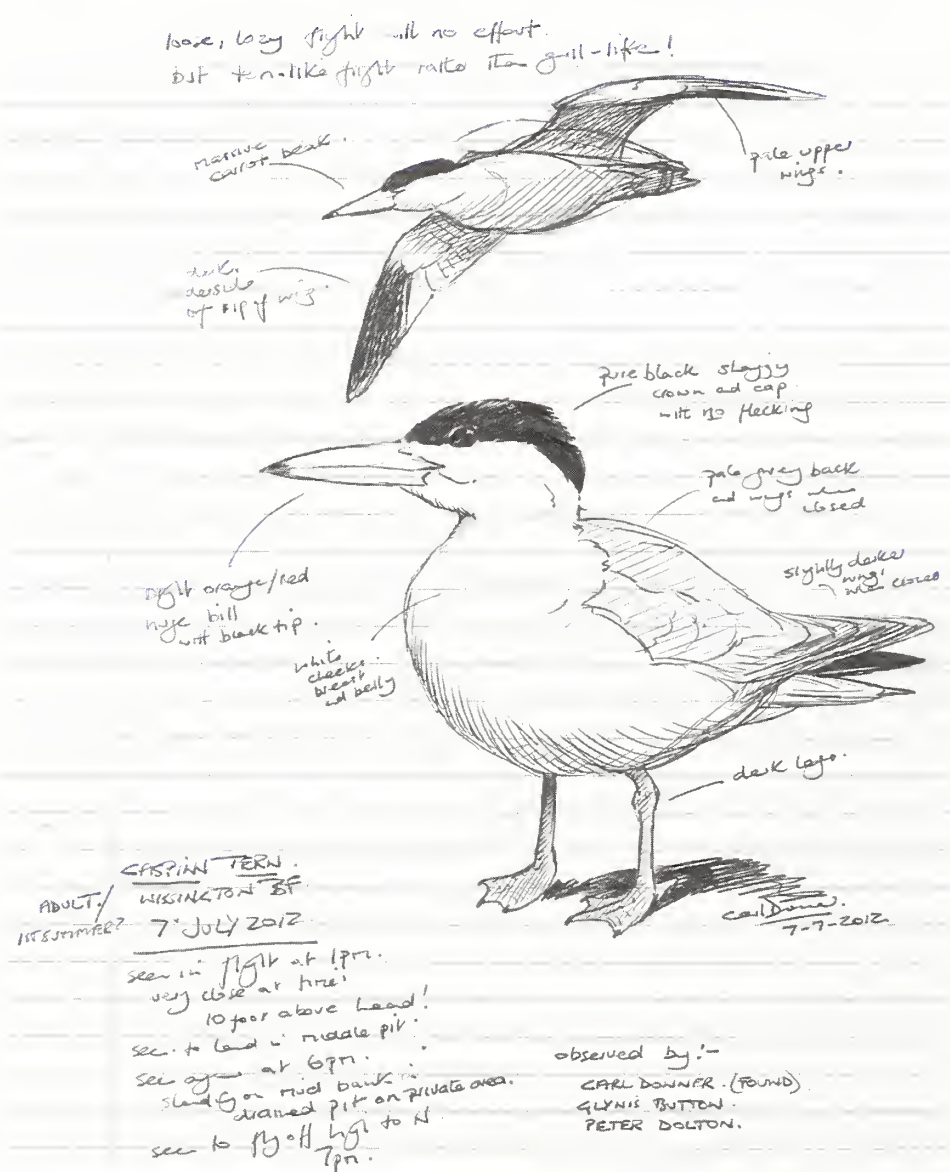 loose, lazy flight with no effort.
but tern-like flight rather than gull-like!
massive
carrot beak.
pale upper
wings.
dark
derside
of tip of wing.
pure black shaggy
crown and cap
with no flecking
pale grey back
and wings when
closed
slightly darker
wings
when closed
bright orange/red
huge bill
with black tip.
white
cheeks
breast
and belly
dark legs.
CASPIAN TERN.
WISSINGTON BF
7 JULY 2012
ADULT/
1ST SUMMER?
Carl Donner.
7-7-2012
seen in flight at 1pm.
very close at times
10 foot above head!
seen to land in middle pit.
seen again at 6pm.
standing on mud bank
drained pit on private area.
seen to fly off high to N
7pm.
observed by:-
CARL DONNER. (FOUND)
GLYNIS BUTTON.
PETER DOLTON.